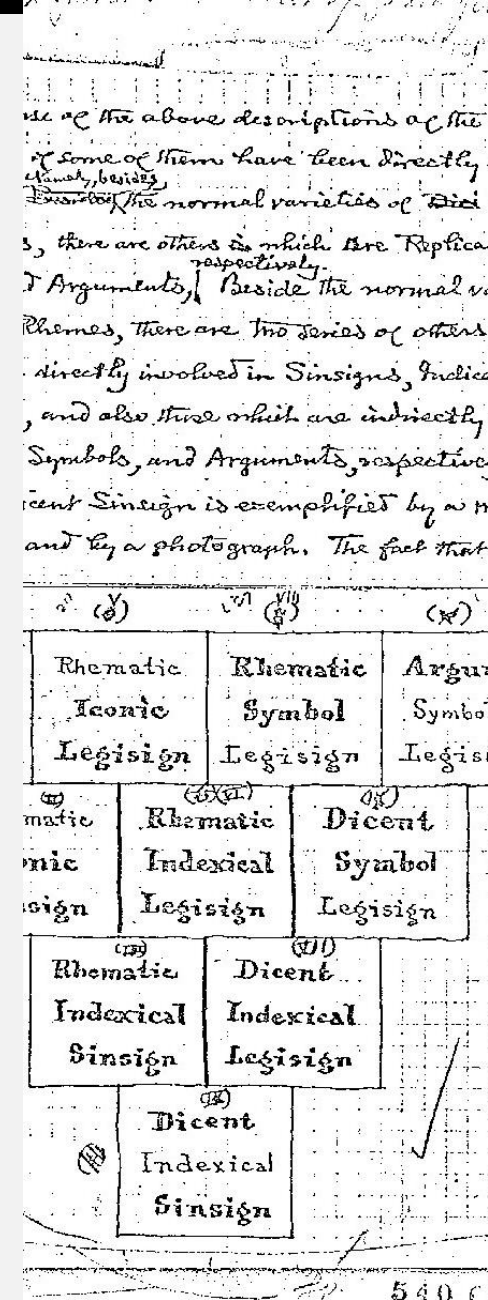 of the above descriptions of the
of some of them have been directly
Namely, besides,
the normal varieties of Dici
s, there are others in which are Replica
respectively.
d Arguments, Beside the normal va
Rhemes, there are two series of others
directly involved in Sinsigns, Indice
, and also those which are indirectly
Symbols, and Arguments, respective
icent Sinsign is exemplified by a
and by a photograph. The fact that
(V) (VIII) (X)
Rhematic Rhematic Argu
Iconic Symbol Symbo
Legisign Legisign Legis
(II) (VI) (IX)
matic Rhematic Dicent
onic Indexical Symbol
sign Legisign Legisign
(III) (VII)
Rhematic Dicent
Indexical Indexical
Sinsign Legisign
Dicent
Indexical
Sinsign
540